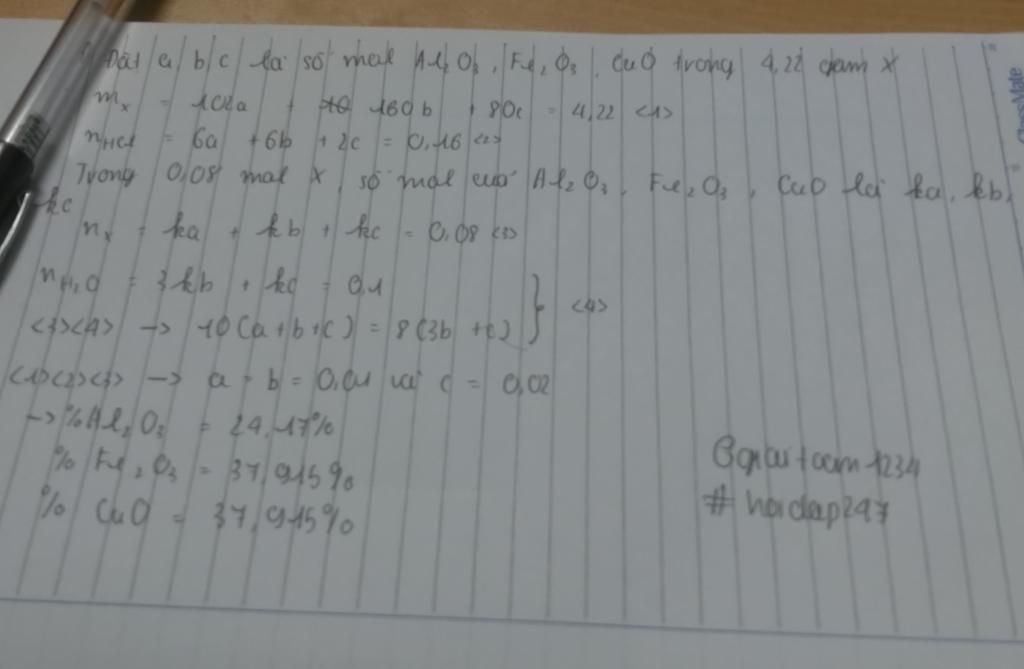 Đặt a b c là số mol Al2O3, Fe2O3, CuO trong 4,22 gam X
mx = 102a + 160b + 80c = 4,22 <1>
nHCl = 6a + 6b + 2c = 0,16 <2>
Trong 0,08 mol X, số mol của Al2O3, Fe2O3, CuO là ka, kb,
kc
nx = ka + kb + kc = 0,08 <3>
nH2O = 3kb + kc = 0,1
} <4>
<3><4> -> 10(a+b+c) = 8(3b+c)
<1><2><3> -> a = b = 0,01 và c = 0,02
-> %Al2O3 = 24,17%
% Fe2O3 = 37,915%
% CuO = 37,915%
1234
# hoidap247
ClassMate